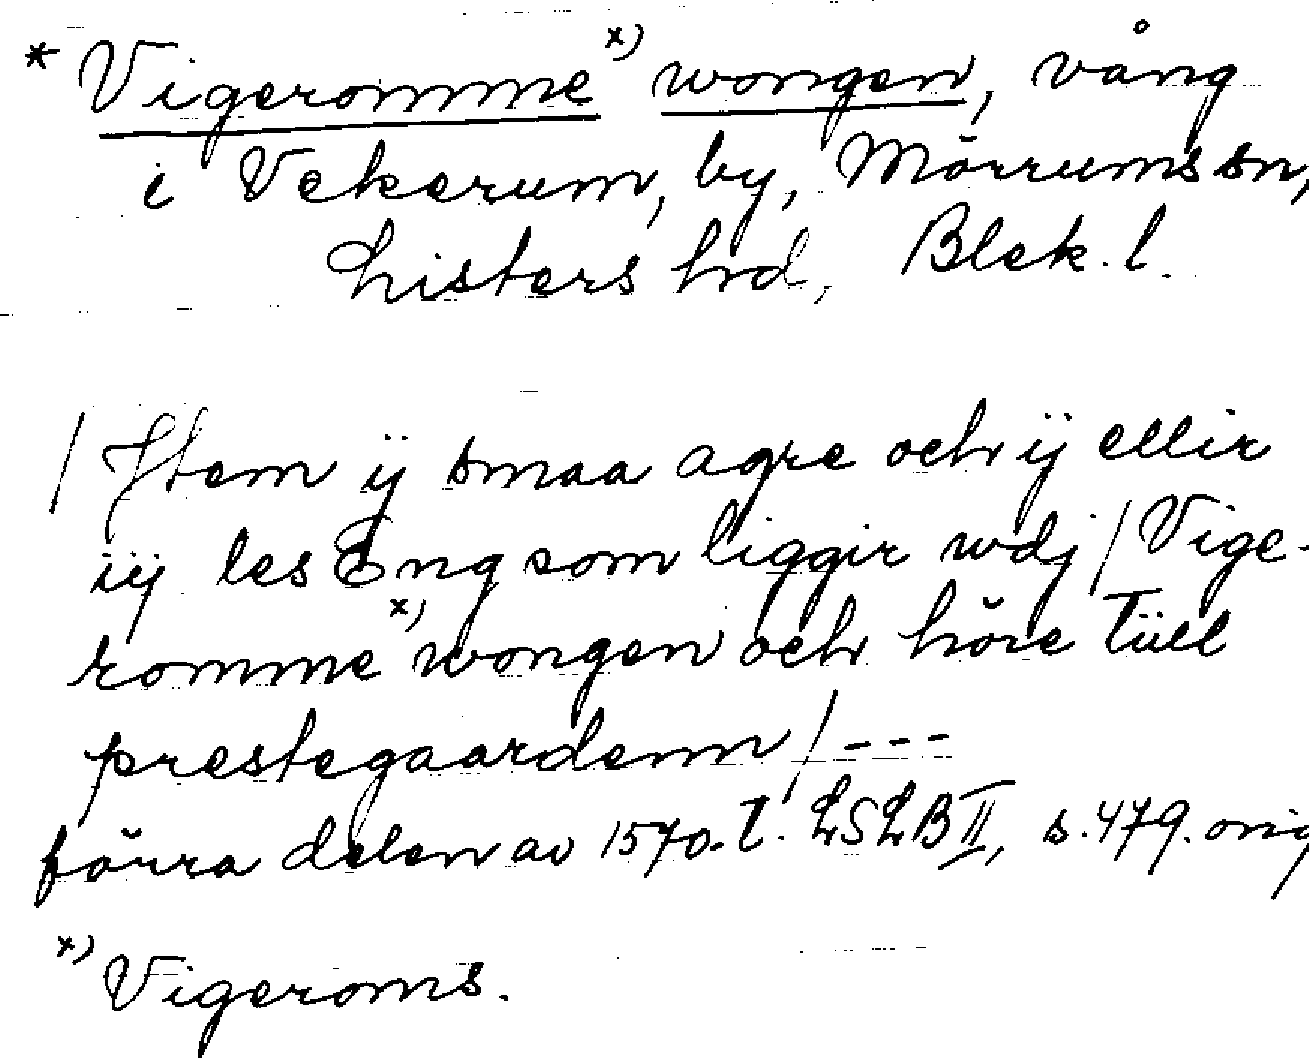 * Vigeromme x) wongen, vång
i Vekerum, by, Mörrums sn,
Listers hd, Blek. l.
/ Jtem ij smaa agre och ij ellir
iij les Eng som liggir wdj / Vige-
romme x) wongen och höre Tiill
prestegaardenn / ---
förra delen av 1570-t. LSLB II, s. 479. orig
x) Vigeroms.